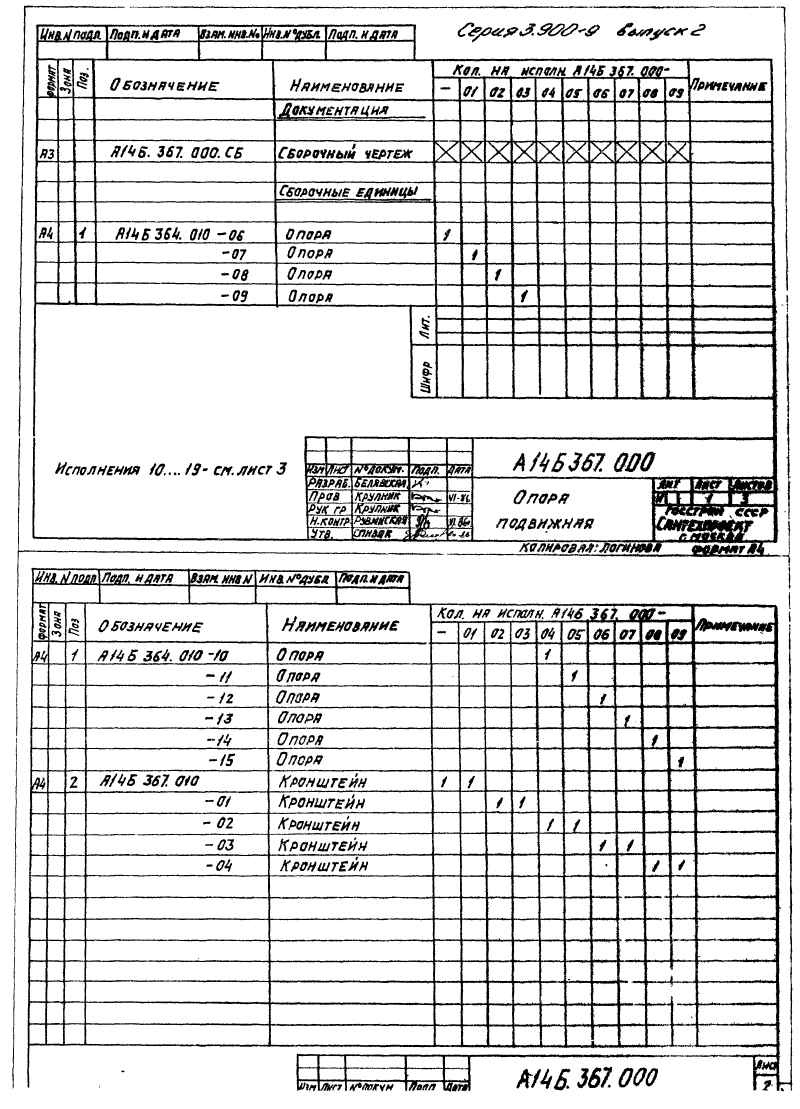 Серия 3.900-9 выпуск 2
Инв.N подл. Подп. и дата Взам. инв.№ Инв.№ дубл. Подп. и дата
Формат Зона Поз. Обозначение Наименование Кол. на исполн. А14Б 367.000- Примечание
- 01 02 03 04 05 06 07 08 09
Документация
А3 А14Б. 367. 000. СБ Сборочный чертеж X X X X X X X X X X
Сборочные единицы
А4 1 А14Б 364. 010 -06 Опора 1
-07 Опора 1
-08 Опора 1
-09 Опора 1
Лит.
Шифр
Исполнения 10....19- см. лист 3
Изм Лист № докум. Подп. Дата
Разраб. Белявская
Пров Крупник VI-86
Рук гр Крупник
Н.контр. Рувинская VI.86
Утв. Спивак
А14Б 367. 000
Опора
подвижная
Лит Лист Листов
И 1 3
Госстрой СССР
Сантехпроект
г. Москва
Копировал: Логинова Формат А4
Инв. N подл Подп. и дата Взам. инв N Инв. № дубл Подп. и дата
Формат Зона Поз Обозначение Наименование Кол. на исполн. А14Б 367. 000- Примечание
- 01 02 03 04 05 06 07 08 09
А4 1 А14Б 364. 010 -10 Опора 1
-11 Опора 1
-12 Опора 1
-13 Опора 1
-14 Опора 1
-15 Опора 1
А4 2 А14Б 367. 010 Кронштейн 1 1
-01 Кронштейн 1 1
-02 Кронштейн 1 1
-03 Кронштейн 1 1
-04 Кронштейн 1 1
Изм Лист № докум Подп Дата
А14Б. 367.000
Лист
2